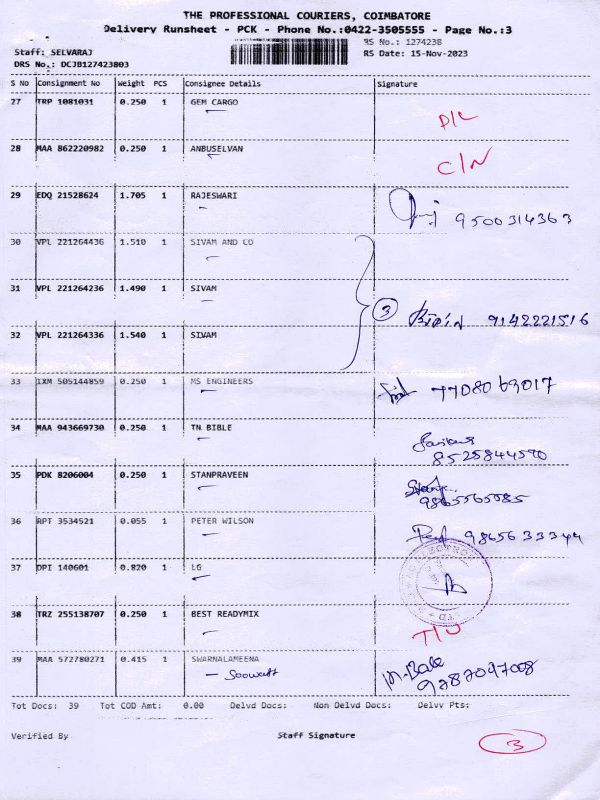 THE PROFESSIONAL COURIERS, COIMBATORE
Delivery Runsheet - PCK - Phone No.:0422-3505555 - Page No.:3
Staff: SELVARAJ RS No.: 1274238
DRS No.: DCJB127423803 RS Date: 15-Nov-2023
S No Consignment No Weight PCS Consignee Details Signature
27 TRP 1081031 0.250 1 GEM CARGO D/L
28 MAA 862220982 0.250 1 ANBUSELVAN C/N
29 EDQ 21528624 1.705 1 RAJESWARI 9500314363
30 VPL 221264436 1.510 1 SIVAM AND CO
31 VPL 221264236 1.490 1 SIVAM 3 9142221516
32 VPL 221264336 1.540 1 SIVAM
33 IXM 505144859 0.250 1 MS ENGINEERS 7708069017
34 MAA 943669730 0.250 1 TN BIBLE 8525844570
35 PDK 8206004 0.250 1 STANPRAVEEN 9865565585
36 RPT 3534521 0.055 1 PETER WILSON 9865633344
37 DPI 140601 0.820 1 LG
38 TRZ 255138707 0.250 1 BEST READYMIX T/U
39 MAA 572780271 0.415 1 SWARNALAMEENA M. Bala
9787097008
Tot Docs: 39 Tot COD Amt: 0.00 Delvd Docs: Non Delvd Docs: Delvv Pts:
Verified By Staff Signature 3